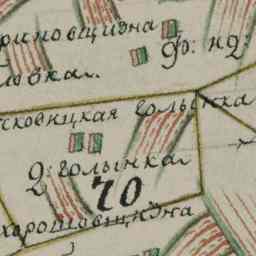 риновщизна
ф: н2:
ловка.
сковицкая голынка
2: голынка
70
хорошовщизна